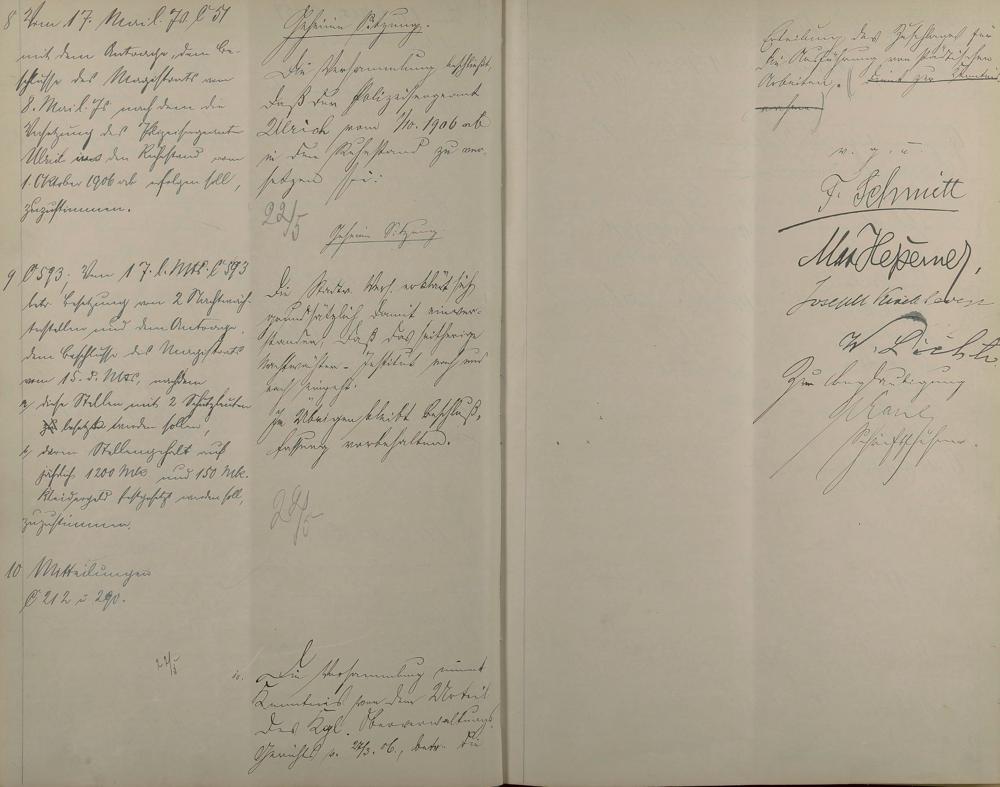 8 Vom 17. Mai l. Js. C 51
mit dem Antrage, dem Be-
schlusse des Magistrats vom
8. Mai l. Js nach dem die
Versetzung des Polizeisergeanten
Ulrich in den Ruhestand vom
1. Oktober 1906 ab erfolgen soll,
zuzustimmen.
Geheime Sitzung.
Die Versammlung beschließt,
daß der Polizeisergeant
Ulrich vom 1/10. 1906 ab
in den Ruhestand zu ver-
setzen sei.
22/5
9 C 593. Vom 17. l. Mts. C 593
betr. Besetzung von 2 Nachtwäch-
terstellen und dem Antrage,
dem Beschlusse des Magistrats
vom 15. d. Mts, nachdem
a, diese Stellen mit 2 Schutzleuten
besetzt werden sollen,
b, deren Stellengehalt auf
jährlich 1200 Mk und 150 Mk.
Kleidergeld festgesetzt werden soll,
zuzustimmen.
Geheime Sitzung
Die Stadtv. Vers. erklärt sich
grundsätzlich damit einver-
standen, daß das seitherige
Nachtwächter-Institut nach und
nach eingeht.
Im Übrigen bleibt Beschluß-
fassung vorbehalten.
22/5
10 Mitteilungen
C 212 u 290.
22/5
Die Versammlung nimmt
Kenntnis von dem Urteil
des Kgl. Oberverwaltungs
Gerichts v. 27/3. 06., betr. die
Erteilung des Zuschlages für
die Ausführung von städtischen
Arbeiten.
v. g. u.
F. Schmitt
Max Heßemer,
Joseph
W.
Zur Beglaubigung
Schriftführer.